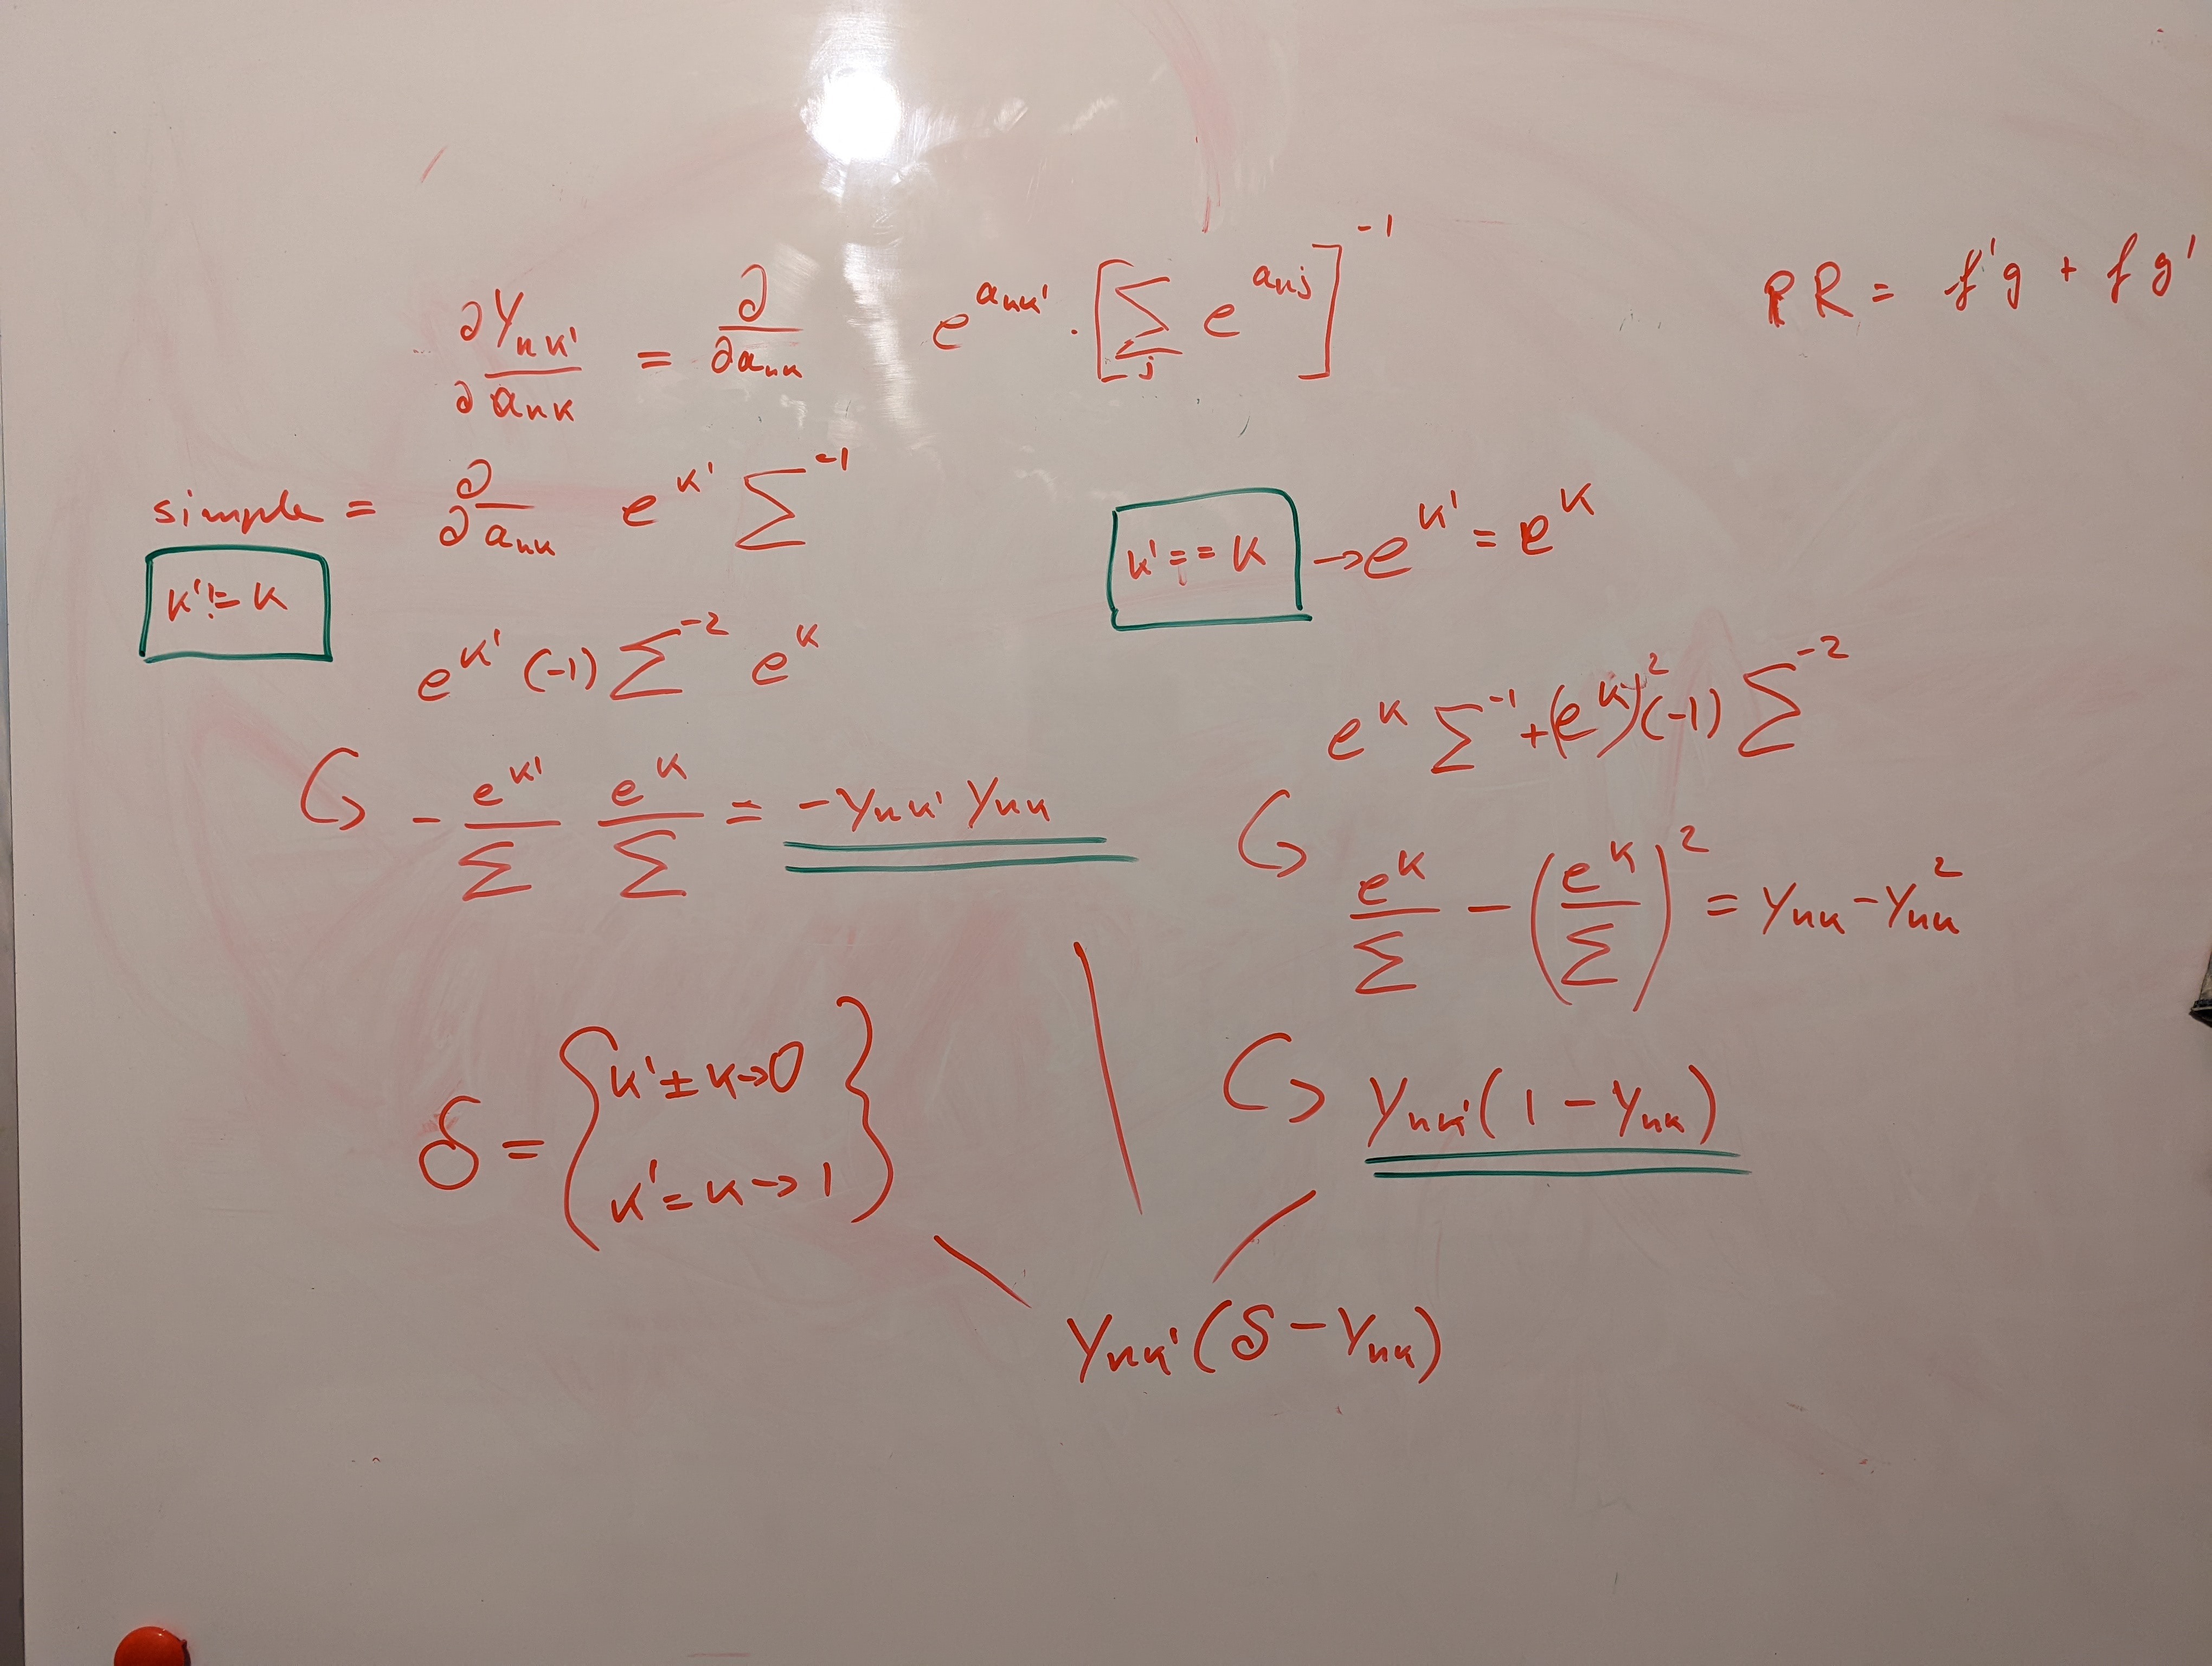 ∂Yₙₖ' / ∂aₙₖ = ∂/∂aₙₖ e^(aₙₖ') · [∑ⱼ e^(aₙⱼ)]⁻¹
PR = f'g + fg'
simple = ∂/∂aₙₖ e^k' ∑⁻¹
k' != k
e^k' (-1) ∑⁻² e^k
↪ - e^k'/∑ e^k/∑ = -yₙₖ' yₙₖ
k' == k → e^k' = e^k
e^k ∑⁻¹ + (e^k)² (-1) ∑⁻²
↪ e^k/∑ - (e^k/∑)² = yₙₖ - yₙₖ²
↪ yₙₖ' (1 - yₙₖ)
δ = { k' ± k → 0
k' = k → 1 }
yₙₖ' (δ - yₙₖ)